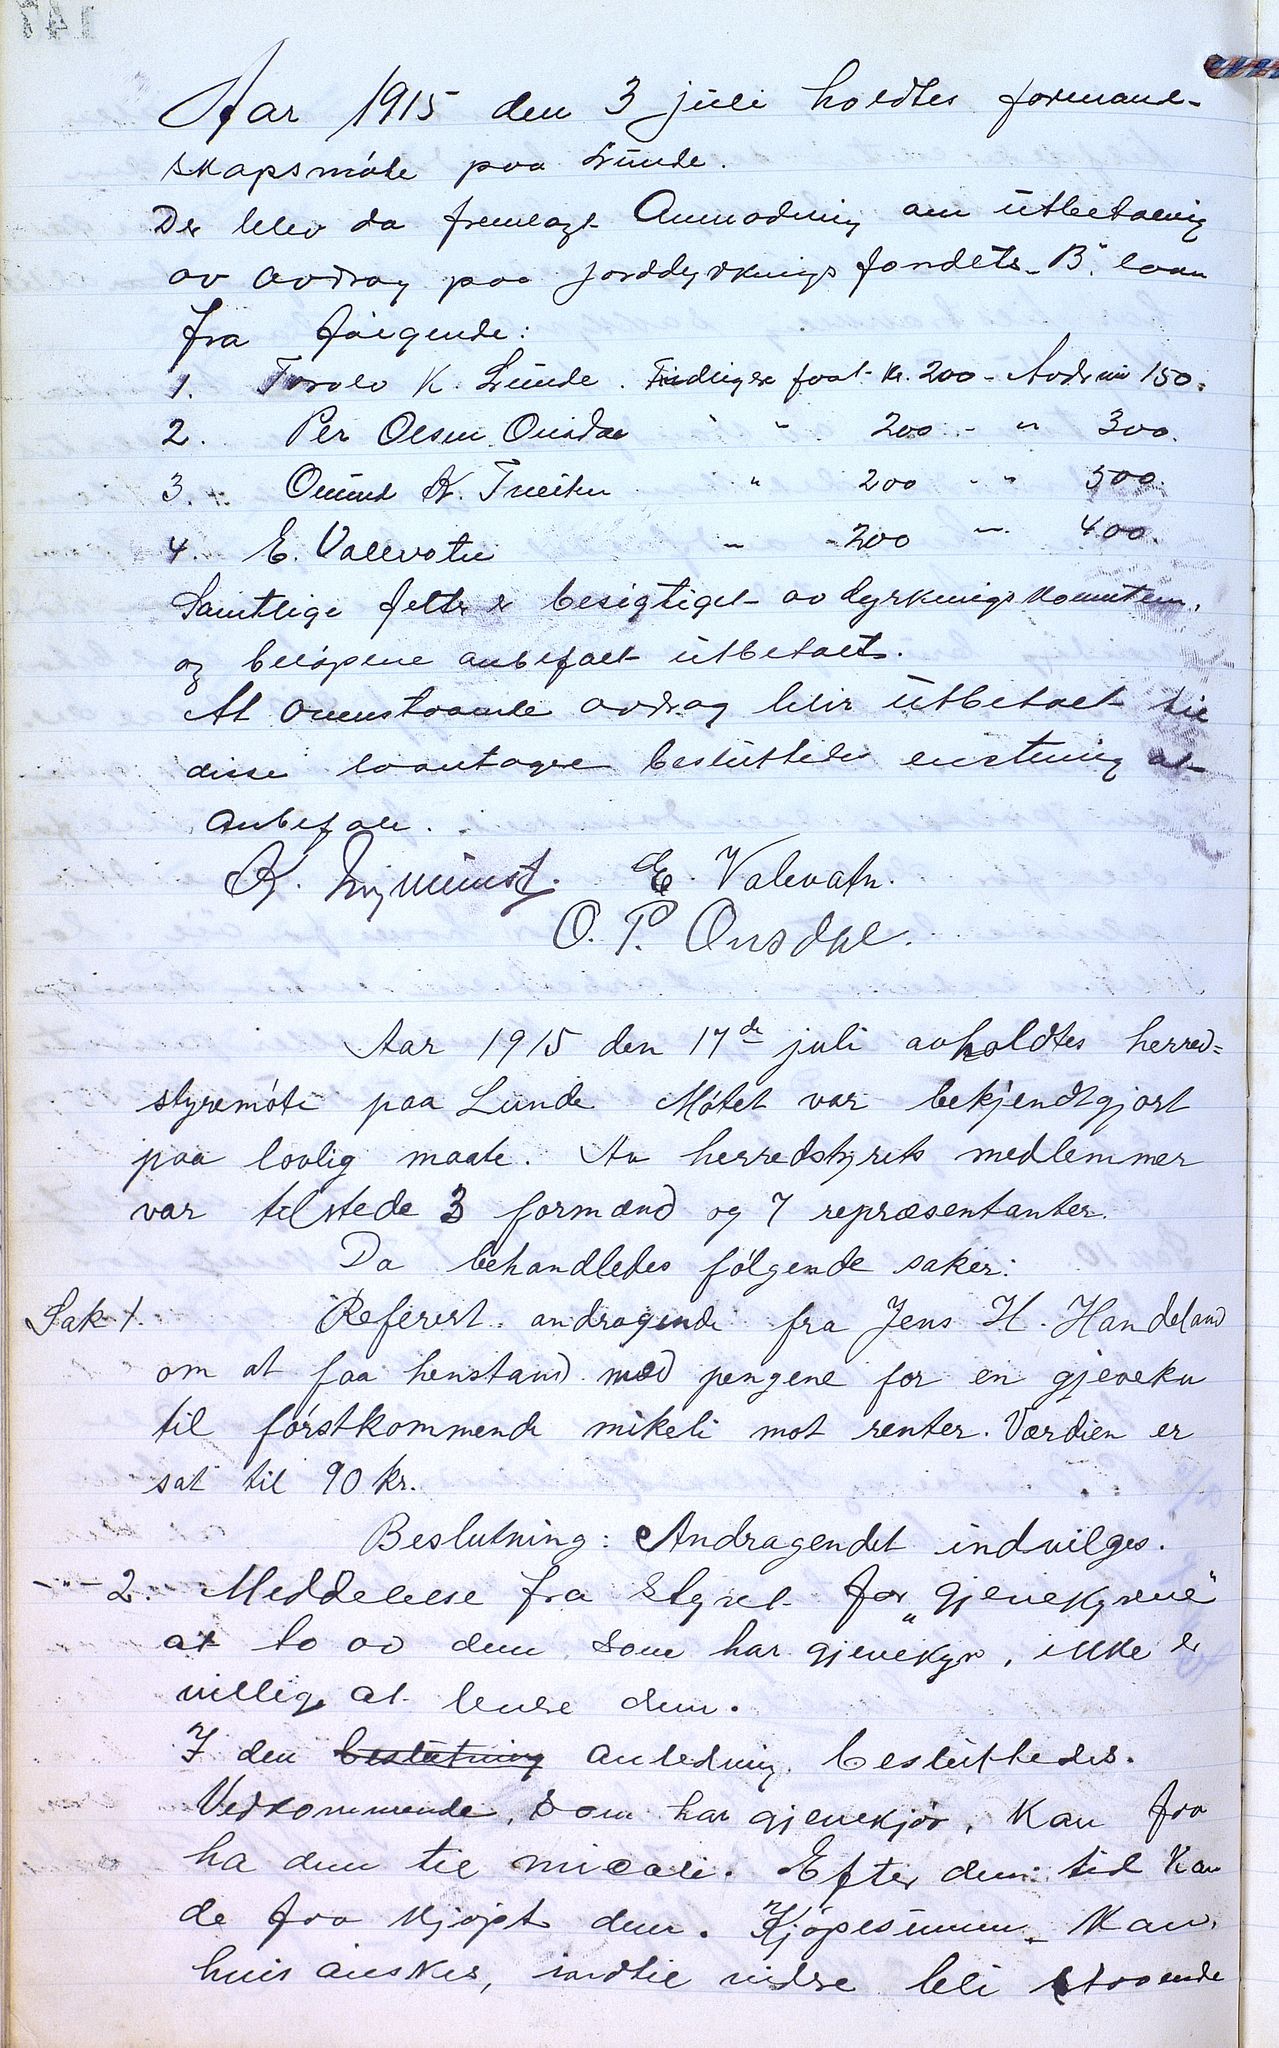 Aar 1915 den 3 juli holdtes formand-
skapsmøte paa Lunde.
Der blev da fremlagt Anmodning om utbetaling
av avdrag paa jorddyrknings fondets „B" laan
fra følgende:
1. Torolv K. Lunde. Tidligere faat Kr. 200 - Andr nu 150.
2. Per Olsen Ousdal " - 200 - " 300.
3. Omund K. Tveiten " 200 - " 500.
4. E. Valevatn - 200 - 400.
Samtlige felter er besigtiget av dyrkningskomiteen,
og beløpene anbefalt utbetalt.
At ovenstaaende avdrag blir utbetalt til
disse laantagere besluttedes enstemig at
anbefale.
E. Valevatn.
O. P. Ousdal.
Aar 1915 den 17de juli avholdtes herred=
styremøte paa Lunde Møtet var bekjendtgjort
paa lovlig maate. Av herredstyrets medlemmer
var tilstede 3 formænd og 7 repræsentanter.
Da behandledes følgende saker:
Sak 1. Referert andragende fra Jens H. Handeland
om at faa henstand med pengene for en gjeveku
til førstkommende mikeli mot renter. Værdien er
sat til 90 kr.
Beslutning: Andragendet indvilges.
-"- 2. Meddelelse fra styret for „gjevekyrne"
at to av dem som har gjevekyr, ikke er
villige at levere dem.
I den beslutning anledning besluttedes.
Vedkommende, som har gjevekjør, kan faa
ha dem til micali. Efter den tid kan
de faa kjøpt dem. Kjøpesummen kan,
hvis ønskes, indtil videre bli staaende
147